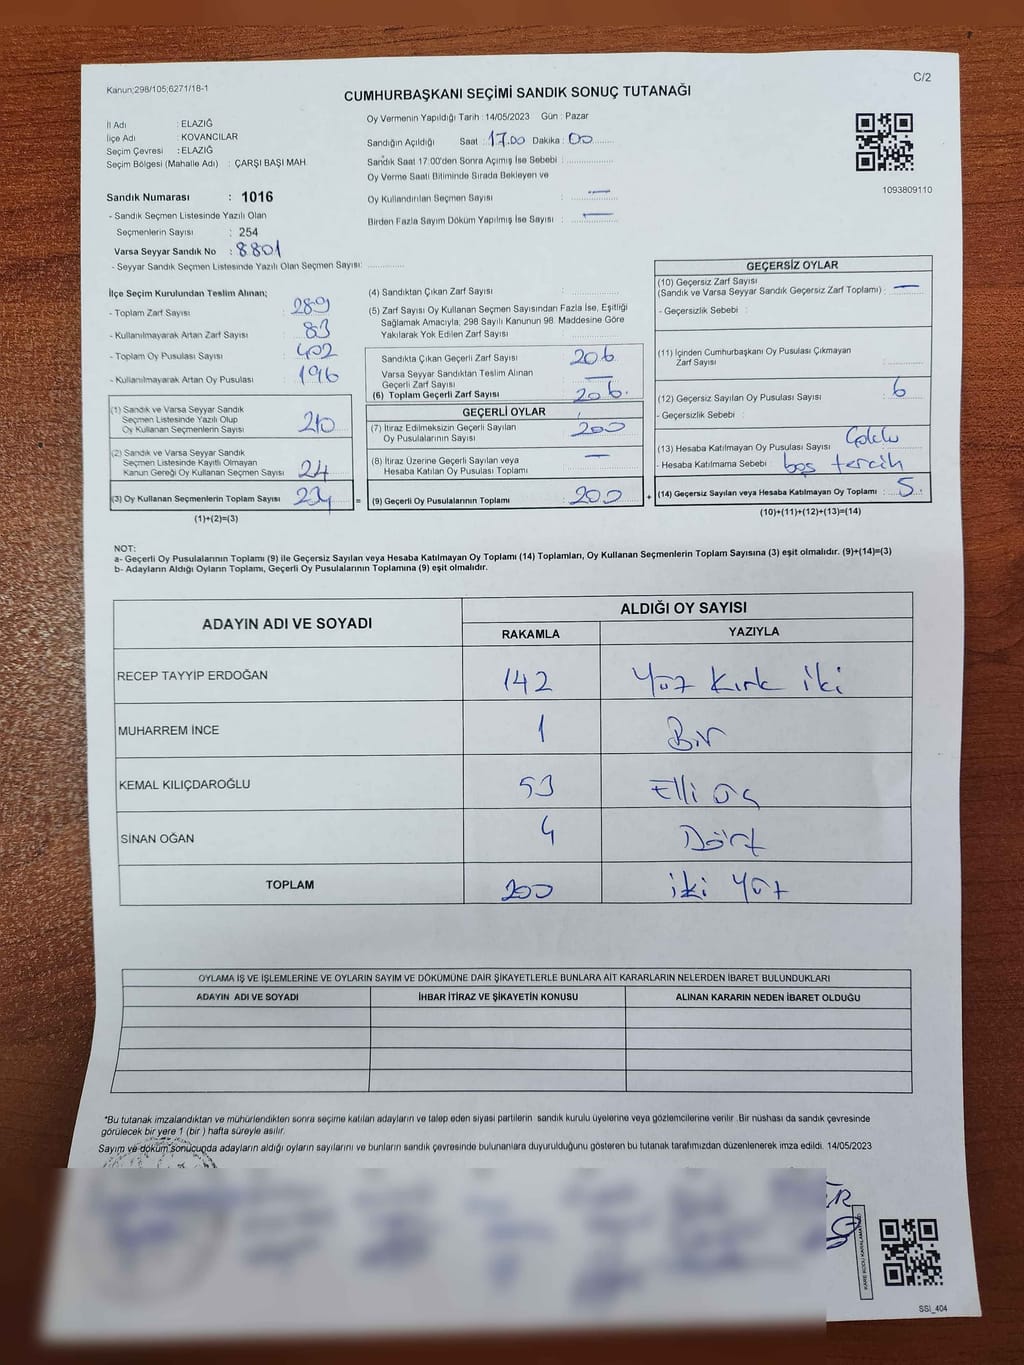 Kanun;298/105;6271/18-1
C/2
CUMHURBAŞKANI SEÇİMİ SANDIK SONUÇ TUTANAĞI
İl Adı : ELAZIĞ
İlçe Adı : KOVANCILAR
Seçim Çevresi : ELAZIĞ
Seçim Bölgesi (Mahalle Adı) : ÇARŞI BAŞI MAH
Sandık Numarası : 1016
- Sandık Seçmen Listesinde Yazılı Olan
Seçmenlerin Sayısı : 254
Varsa Seyyar Sandık No : 8801
- Seyyar Sandık Seçmen Listesinde Yazılı Olan Seçmen Sayısı:
Oy Vermenin Yapıldığı Tarih : 14/05/2023 Gün : Pazar
Sandığın Açıldığı Saat : 17.00 Dakika : 00
Sandık Saat 17:00'den Sonra Açımış İse Sebebi :
Oy Verme Saati Bitiminde Sırada Bekleyen ve
Oy Kullandırılan Seçmen Sayısı : —
Birden Fazla Sayım Döküm Yapılmış İse Sayısı : —
1093809110
İlçe Seçim Kurulundan Teslim Alınan;
- Toplam Zarf Sayısı : 289
- Kullanılmayarak Artan Zarf Sayısı : 83
- Toplam Oy Pusulası Sayısı : 402
- Kullanılmayarak Artan Oy Pusulası : 196
(1) Sandık ve Varsa Seyyar Sandık
Seçmen Listesinde Yazılı Olup
Oy Kullanan Seçmenlerin Sayısı : 210
(2) Sandık ve Varsa Seyyar Sandık
Seçmen Listesinde Kayıtlı Olmayan
Kanun Gereği Oy Kullanan Seçmen Sayısı : 24
(3) Oy Kullanan Seçmenlerin Toplam Sayısı : 234 =
(1)+(2)=(3)
(4) Sandıktan Çıkan Zarf Sayısı :
(5) Zarf Sayısı Oy Kullanan Seçmen Sayısından Fazla İse, Eşitliği
Sağlamak Amacıyla, 298 Sayılı Kanunun 98. Maddesine Göre
Yakılarak Yok Edilen Zarf Sayısı :
Sandıkta Çıkan Geçerli Zarf Sayısı : 206
Varsa Seyyar Sandıktan Teslim Alınan
Geçerli Zarf Sayısı : —
(6) Toplam Geçerli Zarf Sayısı : 206.
GEÇERLİ OYLAR
(7) İtiraz Edilmeksizin Geçerli Sayılan
Oy Pusulalarının Sayısı : 200
(8) İtiraz Üzerine Geçerli Sayılan veya
Hesaba Katılan Oy Pusulası Toplamı : —
(9) Geçerli Oy Pusulalarının Toplamı : 200 +
GEÇERSİZ OYLAR
(10) Geçersiz Zarf Sayısı
(Sandık ve Varsa Seyyar Sandık Geçersiz Zarf Toplamı) : —
- Geçersizlik Sebebi :
(11) İçinden Cumhurbaşkanı Oy Pusulası Çıkmayan
Zarf Sayısı :
(12) Geçersiz Sayılan Oy Pusulası Sayısı : 6
- Geçersizlik Sebebi :
(13) Hesaba Katılmayan Oy Pusulası Sayısı :
- Hesaba Katılmama Sebebi : boş tercih
(14) Geçersiz Sayılan veya Hesaba Katılmayan Oy Toplamı : 5.
(10)+(11)+(12)+(13)=(14)
NOT:
a- Geçerli Oy Pusulalarının Toplamı (9) ile Geçersiz Sayılan veya Hesaba Katılmayan Oy Toplamı (14) Toplamları, Oy Kullanan Seçmenlerin Toplam Sayısına (3) eşit olmalıdır. (9)+(14)=(3)
b- Adayların Aldığı Oyların Toplamı, Geçerli Oy Pusulalarının Toplamına (9) eşit olmalıdır.
ADAYIN ADI VE SOYADI
ALDIĞI OY SAYISI
RAKAMLA YAZIYLA
RECEP TAYYİP ERDOĞAN 142 Yüz Kırk iki
MUHARREM İNCE 1 Bir
KEMAL KILIÇDAROĞLU 53 Elli üç
SİNAN OĞAN 4 Dört
TOPLAM 200 iki Yüz
OYLAMA İŞ VE İŞLEMLERİNE VE OYLARIN SAYIM VE DÖKÜMÜNE DAİR ŞİKAYETLERLE BUNLARA AİT KARARLARIN NELERDEN İBARET BULUNDUKLARI
ADAYIN ADI VE SOYADI İHBAR İTİRAZ VE ŞİKAYETİN KONUSU ALINAN KARARIN NEDEN İBARET OLDUĞU
*Bu tutanak imzalandıktan ve mühürlendikten sonra seçime katılan adayların ve talep eden siyasi partilerin sandık kurulu üyelerine veya gözlemcilerine verilir. Bir nüshası da sandık çevresinde
görülecek bir yere 1 (bir ) hafta süreyle asılır.
Sayım ve döküm sonucunda adayların aldığı oyların sayılarını ve bunların sandık çevresinde bulunanlara duyurulduğunu gösteren bu tutanak tarafımızdan düzenlenerek imza edildi. 14/05/2023
SSI_404